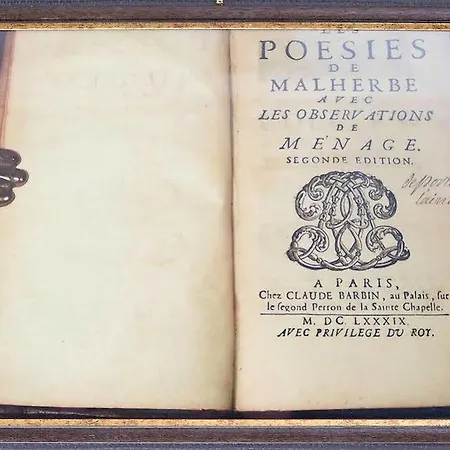 LES
POESIES
DE
MALHERBE
AVEC
LES OBSERVATIONS
DE
MENAGE.
SEGONDE EDITION.
A PARIS,
Chez CLAUDE BARBIN, au Palais, sur
le segond Perron de la Sainte Chapelle.
M. DC. LXXXIX.
AVEC PRIVILEGE DU ROY.